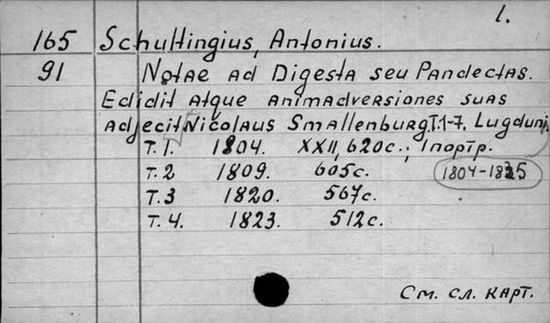 1.
165 Schultingius, Antonius.
91 Notae ad Digesta seu Pandectas.
Edidit atque animadversiones suas
adjecit Nicolaus Smallenburg. T. 1-7. Lugduni,
T. 1 1804. XXII, 620 с., 1 портр.
T. 2 1809. 605 с. 1804-1835
T. 3 1820. 567 с.
T. 4. 1823. 512 с.
См. сл. карт.